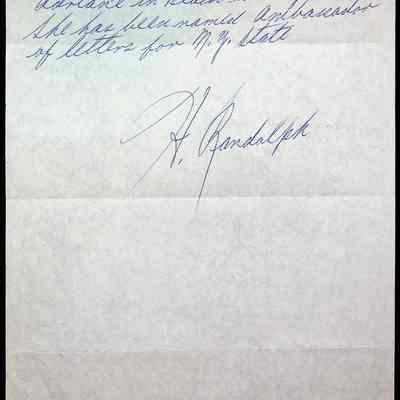 in
She has been named Ambassador
of letters for N.Y. State
H. Randolph